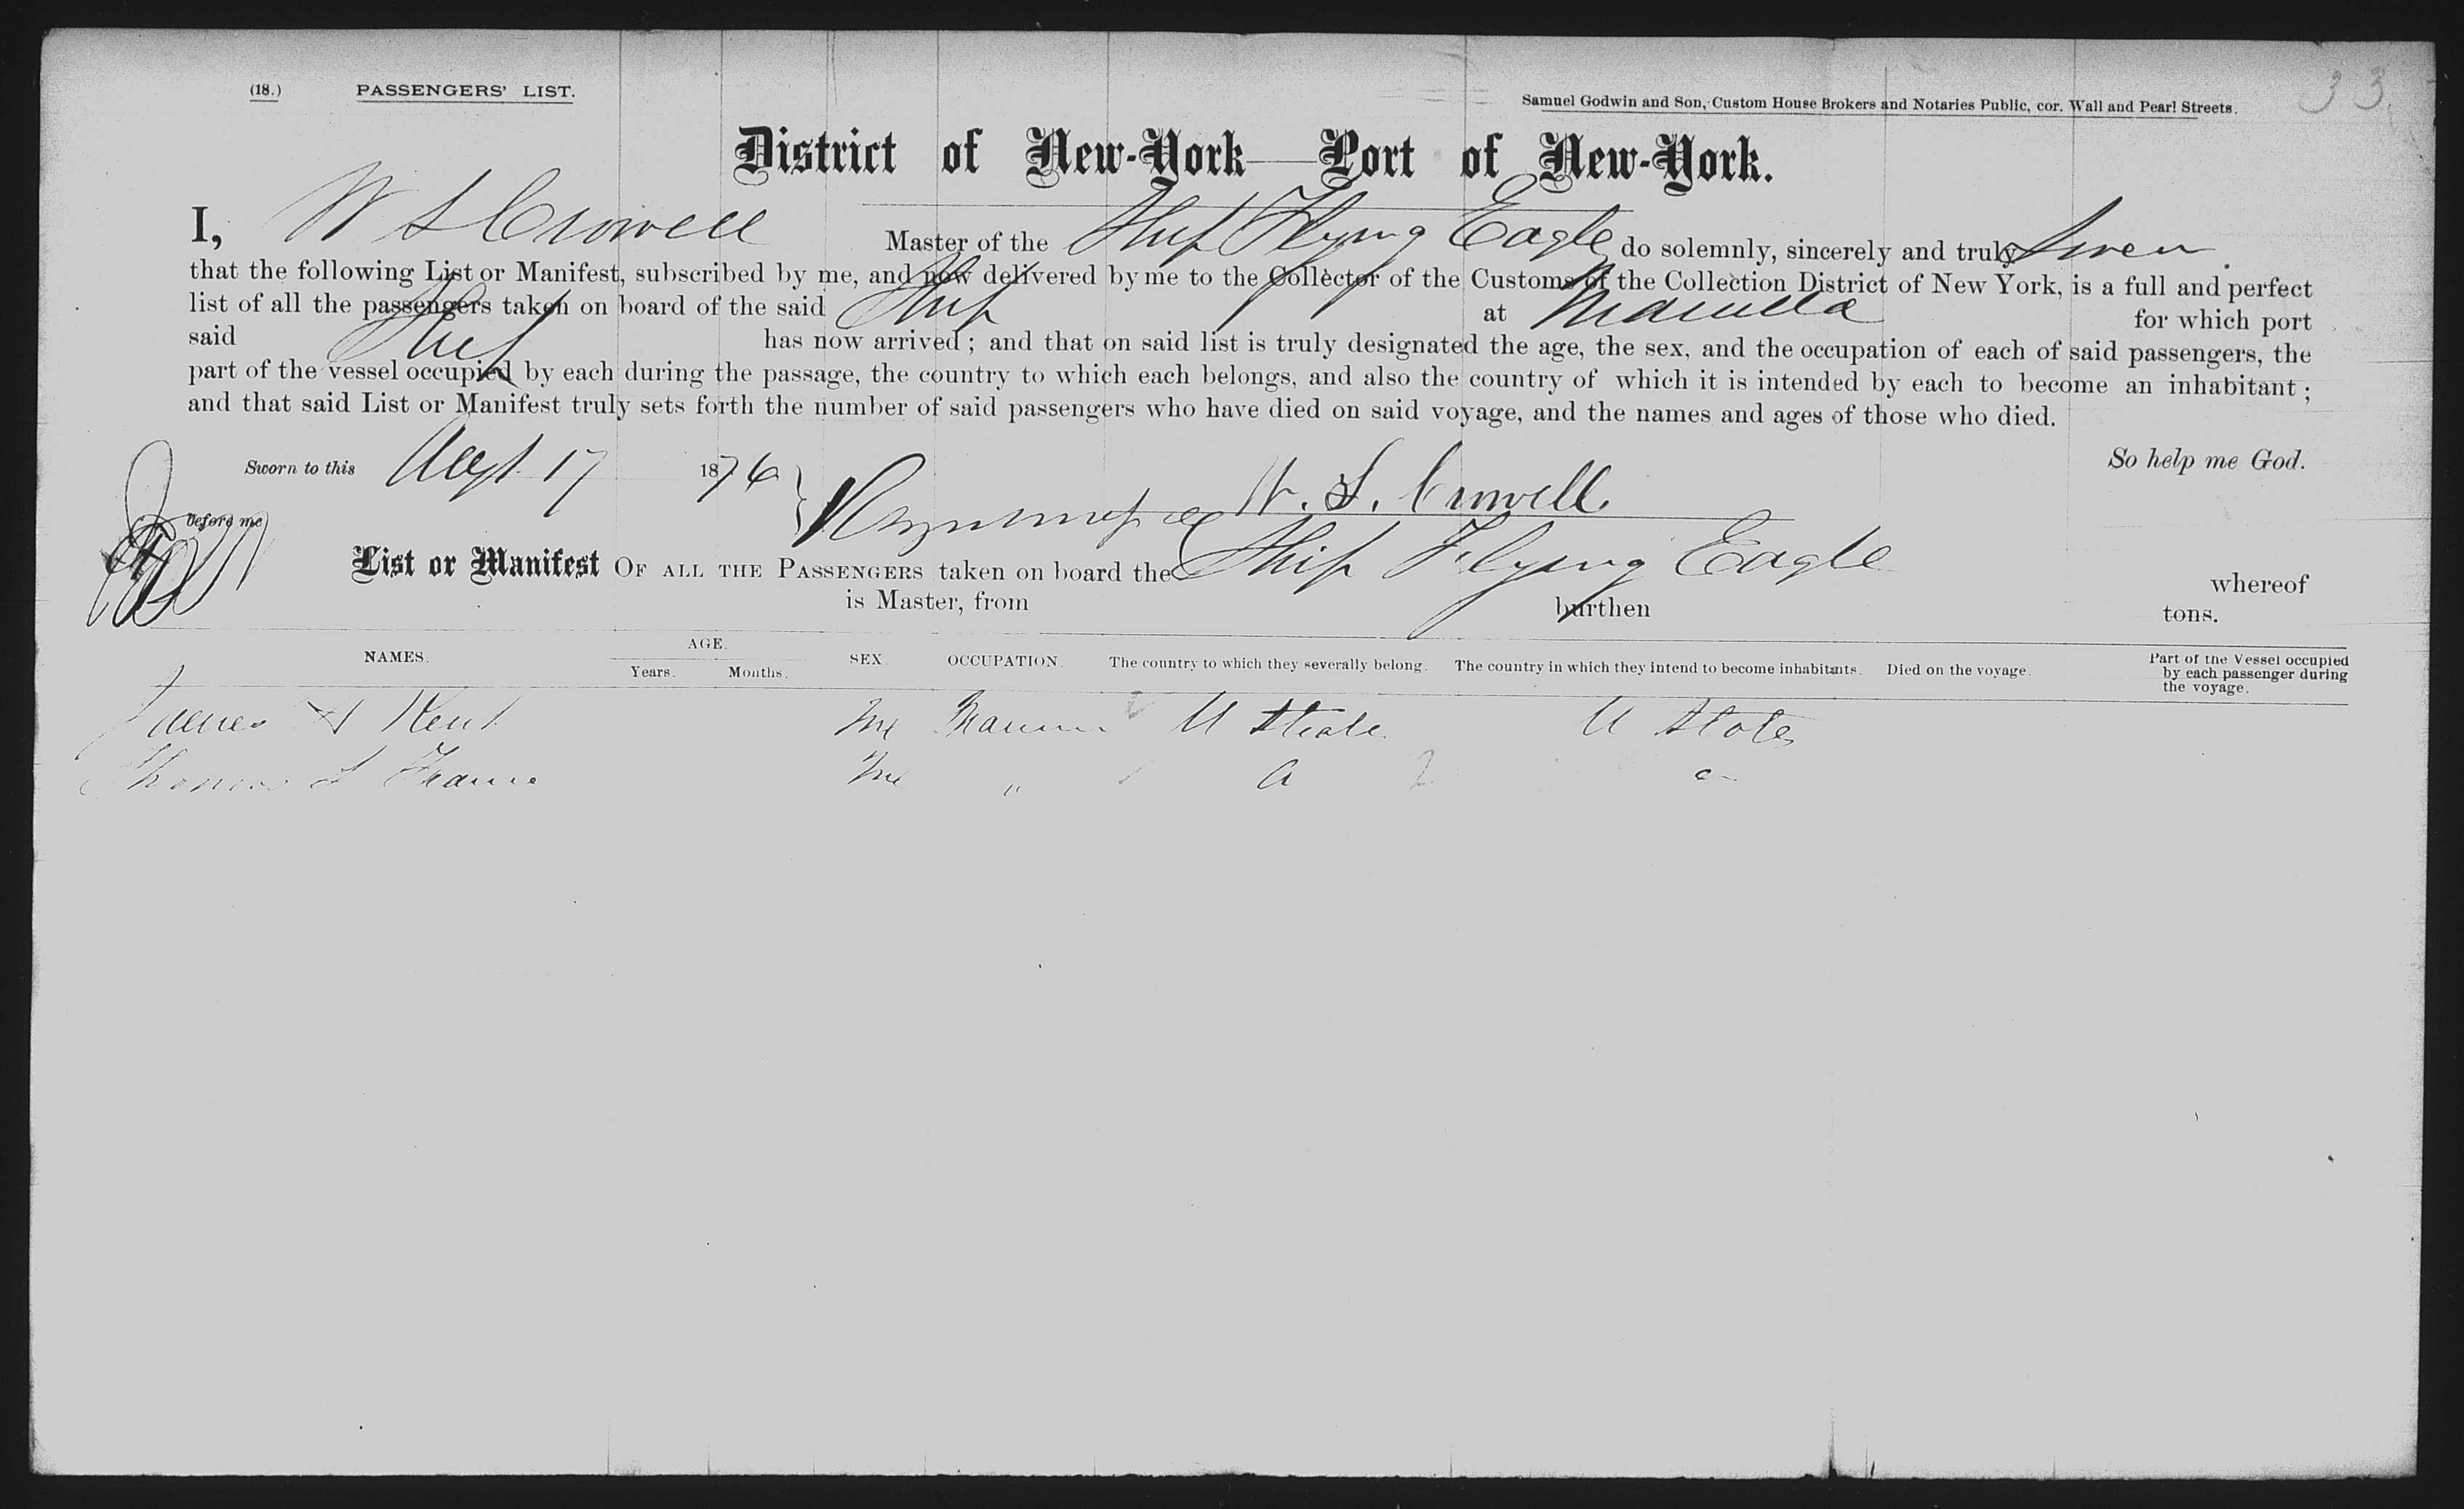 (18.) PASSENGERS' LIST.
Samuel Godwin and Son, Custom House Brokers and Notaries Public, cor. Wall and Pearl Streets.
33
District of New-York—Port of New-York.
I, W S Crowell Master of the Ship Flying Eagle do solemnly, sincerely and truly Swear
that the following List or Manifest, subscribed by me, and now delivered by me to the Collector of the Customs of the Collection District of New York, is a full and perfect
list of all the passengers taken on board of the said Ship at Manilla for which port
said Ship has now arrived; and that on said list is truly designated the age, the sex, and the occupation of each of said passengers, the
part of the vessel occupied by each during the passage, the country to which each belongs, and also the country of which it is intended by each to become an inhabitant;
and that said List or Manifest truly sets forth the number of said passengers who have died on said voyage, and the names and ages of those who died.
So help me God.
Sworn to this 17 1876
W. S. Crowell
before me
List or Manifest OF ALL THE PASSENGERS taken on board the Ship Flying Eagle whereof
is Master, from burthen tons.
NAMES. AGE. SEX. OCCUPATION. The country to which they severally belong. The country in which they intend to become inhabitants. Died on the voyage. Part of the Vessel occupied by each passenger during the voyage.
Years. Months.
James Kent U State U States
Thomas "